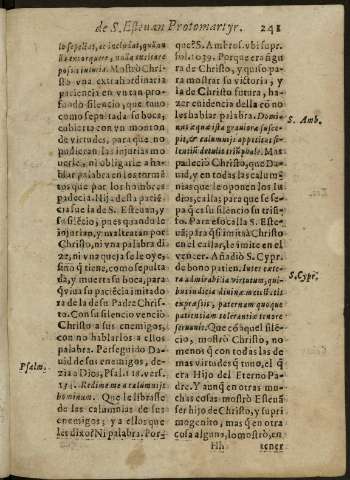 de S. Esteuan Protomartyr. 241
lo sepeltat, et includat, quã
posita inimica. Mostrò Chri-
sto vna extraordinaria
paciencia en vn tan pro-
fundo silencio, que tuuo
como sepultada su boca,
cubierta con vn monton
de virtudes, para que no
pudieran las injurias mo
uerle, ni obligarle a ha-
blar palabra en los tormẽ
tos que por los hombres
padecia. Hija desta paciẽ-
cia fue la de S. Esteuan, y
su silẽcio, pues quando le
injurian, y maltratan por
Christo, ni vna palabra di
ze, ni vna quexa se le oye,
sino q̃ tiene, como sepulta
da, y muerta su boca, para
q̃ viua su paciẽcia imitado
ra de la de su Padre Chris-
to. Con su silencio venciò
Christo a sus enemigos,
con no hablarlos a ellos
palabra. Perseguido Da-
uid de sus enemigos, de-
zia a Dios, Psal. 118. vers.
Psalm.
134. Redime me a calumnijs
hominum. Que le librasse
de las calumnias de sus
enemigos; y a ellos que
les dixo? Ni palabra. Por-
que? S. Ambros. vbi supr.
fol. 1039. Porque era figu
ra de Christo, y quiso pa-
ra mostrar su victoria, y
la de Christo futura, ha-
zer euidencia della cõ no
les hablar palabra. Domi-
S. Amb.
nus æqua ista grauiora susce-
pit, & calumnijs appetitus si-
lentiũ detulit tribunale. Mas
padeciò Christo, que Da-
uid, y en todas las calum-
nias que le oponen los Iu
dios, calla; para que se se-
pa q̃ es su silencio su triũ-
fo. Para esso calla S. Este-
uã; para q̃ si imita à Christo
en el callar, le imite en el
vencer. Añadiò S. Cypr.
de bono patien. Inter cæte-
S. Cypr.
ra admirabilia virtutum, qui-
bus indicia diuinæ maiestatis
expressit, paternam quoque
patientiam tolerantiæ tenore
seruauit. Que cõ aquel silẽ-
cio, mostrò Christo, no
menos q̃ con todas las de
mas virtudes q̃ tuuo, el q̃
era Hijo del Eterno Pa-
dre. Y aunq̃ en otras mu-
chas cosas mostrò Esteuã
ser hijo de Christo, y su pri
mogenito, mas q̃ en otra
cosa alguna, lo mostrò, en
Hh tener